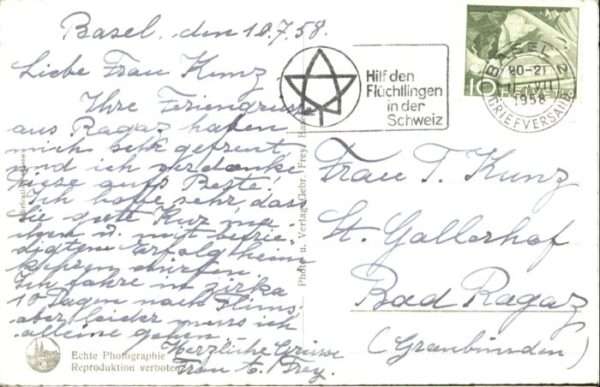 Basel, den 10.7.58.
Liebe Frau Kunz
Ihre Feriengrüsse
aus Ragaz haben
mich sehr gefreut
und ich verdanke
diese aufs Beste!
Ich hoffe sehr dass
Sie gute Kur ma-
chen u. mit befrie-
digtem Erfolg heim
kehren dürfen.
Ich fahre in zirka
10 Tagen nach Flims
aber leider muss ich
alleine gehen.
Herzliche Grüsse
Frau E. Frey.
Echte Photographie
Reproduktion verboten
Photo u. Verlag Gebr. Frey,
Hilf den
Flüchtlingen
in der
Schweiz
10
BASEL 2
20-21
1958
BRIEFVERSAND
Frau T. Kunz
St. Gallerhof
Bad Ragaz
(Graubünden)